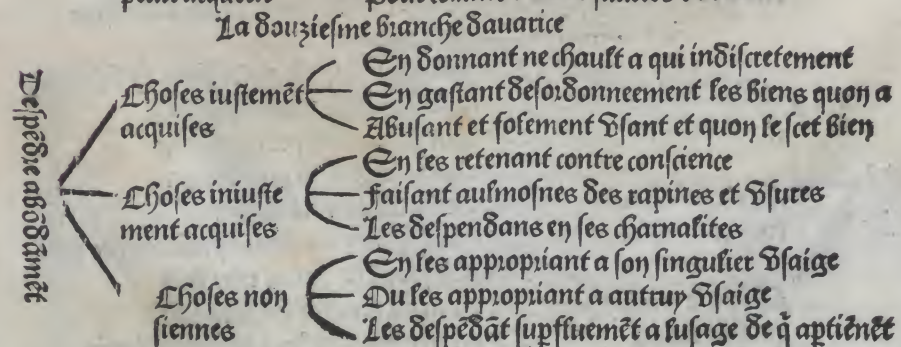 La douziesme branche dauarice
Despẽdre abõdãmẽt
Choses iustemẽt
acquises
En donnant ne chault a qui indiscretement
En gastant desordonneement les biens quon a
Abusant et folement vsant et quon le scet bien
Choses iniuste
ment acquises
En les retenant contre conscience
Faisant aulmosnes des rapines et vsures
Les despendans en ses charnalites
Choses non
siennes
En les appropriant a son singulier vsaige
Ou les appropriant a autruy vsaige
Les despẽdãt supꝑfluemẽt a lusage de q̃ aptiẽnẽt